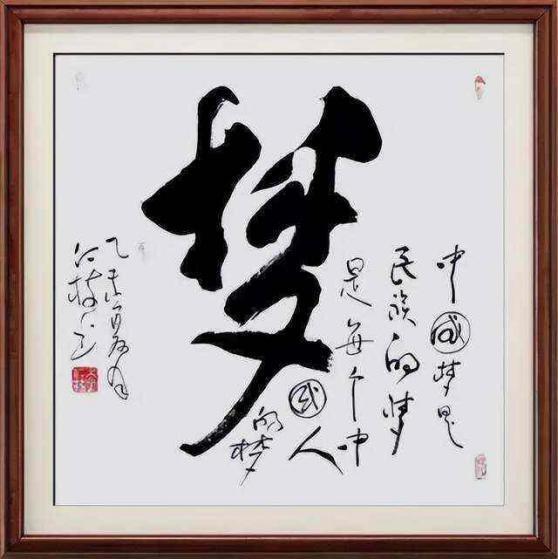 梦
中國梦是
民族的梦
是每个中
國人
的梦
乙未夏月